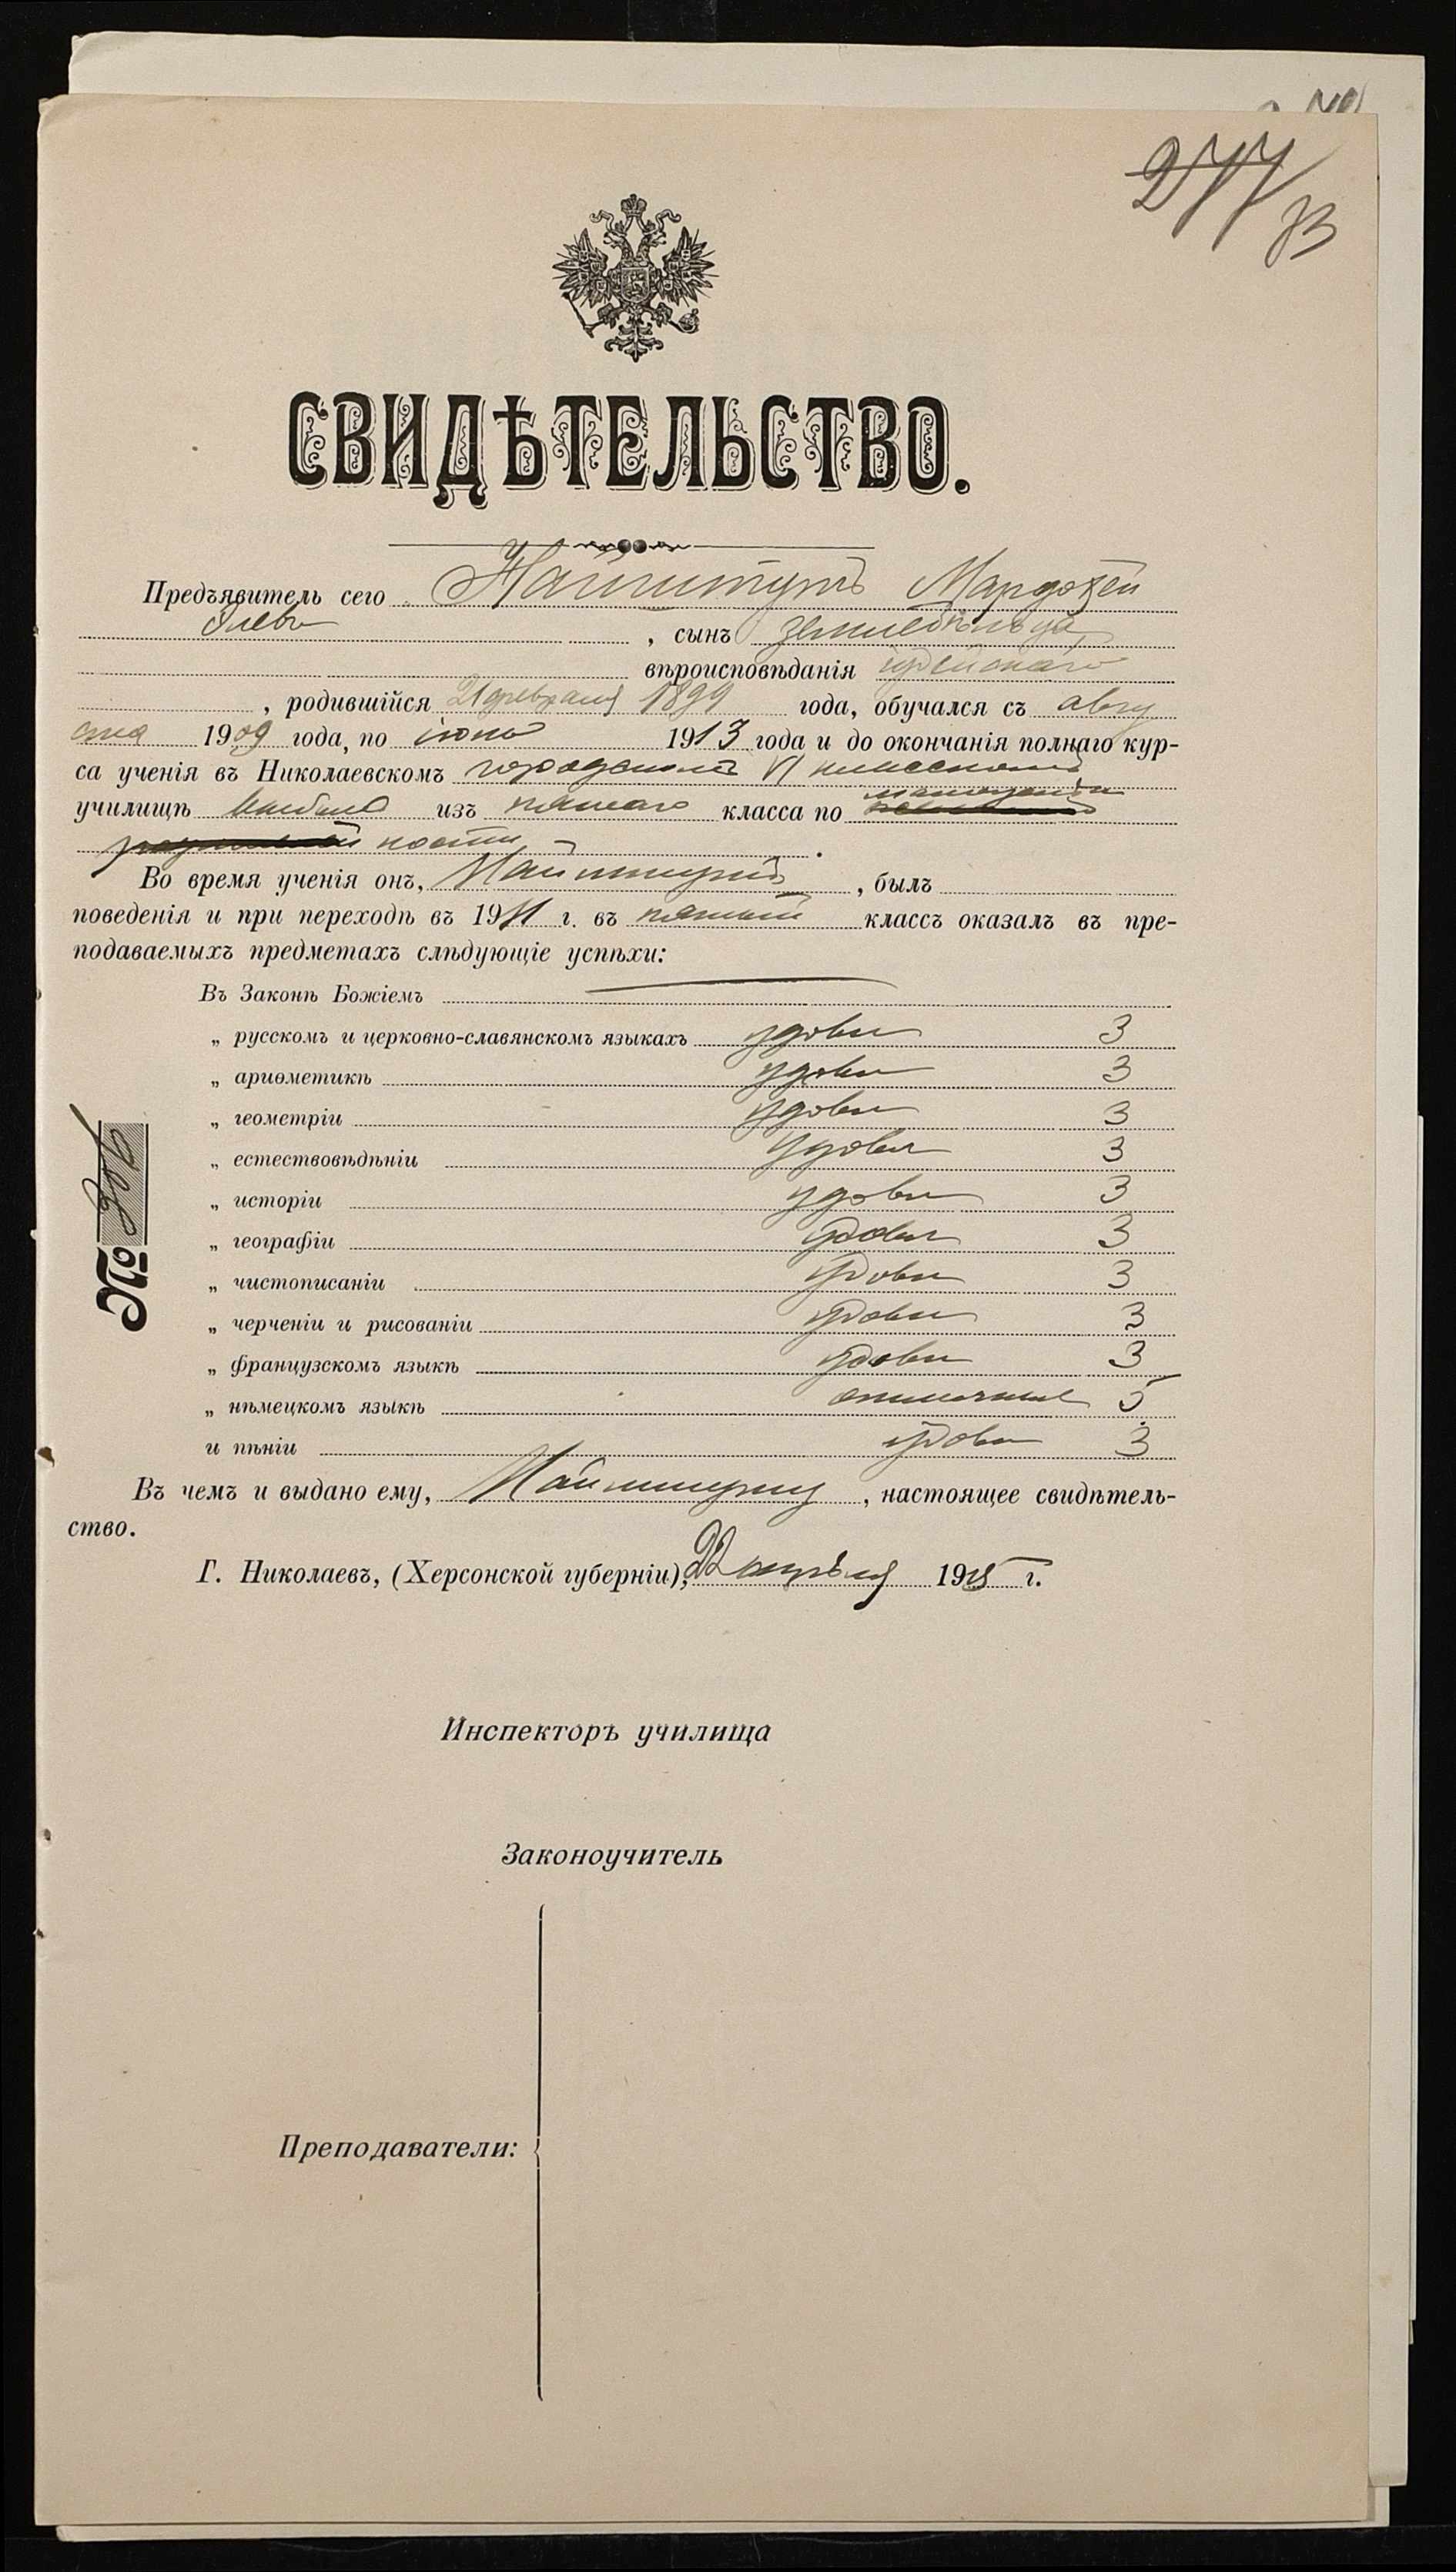 277
73
СВИДѢТЕЛЬСТВО.
Предъявитель сего Наймитупъ Мардохей
, сынъ земледѣльца
вѣроисповѣданія іудейскаго
, родившійся 21 февраля 1899 года, обучался съ авгу
ста 1909 года, по іюнь 1913 года и до окончанія полнаго кур-
са ученія въ Николаевскомъ городскомъ VI классномъ
училищѣ выбылъ изъ пятаго класса по
Во время ученія онъ, , былъ
поведенія и при переходѣ въ 1911 г. въ пятый классъ оказалъ въ пре-
подаваемыхъ предметахъ слѣдующіе успѣхи:
Въ Законѣ Божіемъ
„ русскомъ и церковно-славянскомъ языкахъ удовл 3
„ ариѳметикѣ удовл 3
„ геометріи удовл 3
„ естествовѣдѣніи удовл 3
„ исторіи удовл 3
„ географіи удовл 3
„ чистописаніи удовл 3
„ черченіи и рисованіи удовл 3
„ французскомъ языкѣ удовл 3
„ нѣмецкомъ языкѣ отличные 5
и пѣніи удовл 3
Въ чемъ и выдано ему, , настоящее свидѣтель-
ство.
Г. Николаевъ, (Херсонской губерніи), 22 апрѣля 1915 г.
№
Инспекторъ училища
Законоучитель
Преподаватели: